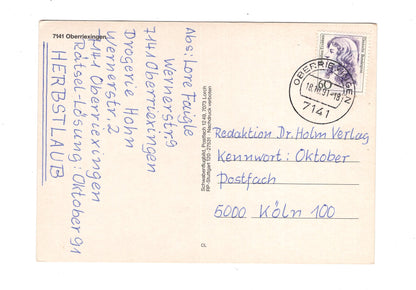 7141 Oberriexingen
Abs: Lore Faigle
Wernerstr. 9
7141 Oberriexingen
Drogerie Hohn
Wernerstr. 2
7141 Oberriexingen
Rätsel-Lösung: Oktober 91
HERBSTLAUB
Schwabenflugbild, Postfach 1245, 7073 Lorch
OBERRIEXINGEN
7141
60
Redaktion Dr. Holm Verlag
Kennwort: Oktober
Postfach
5000 Köln 100